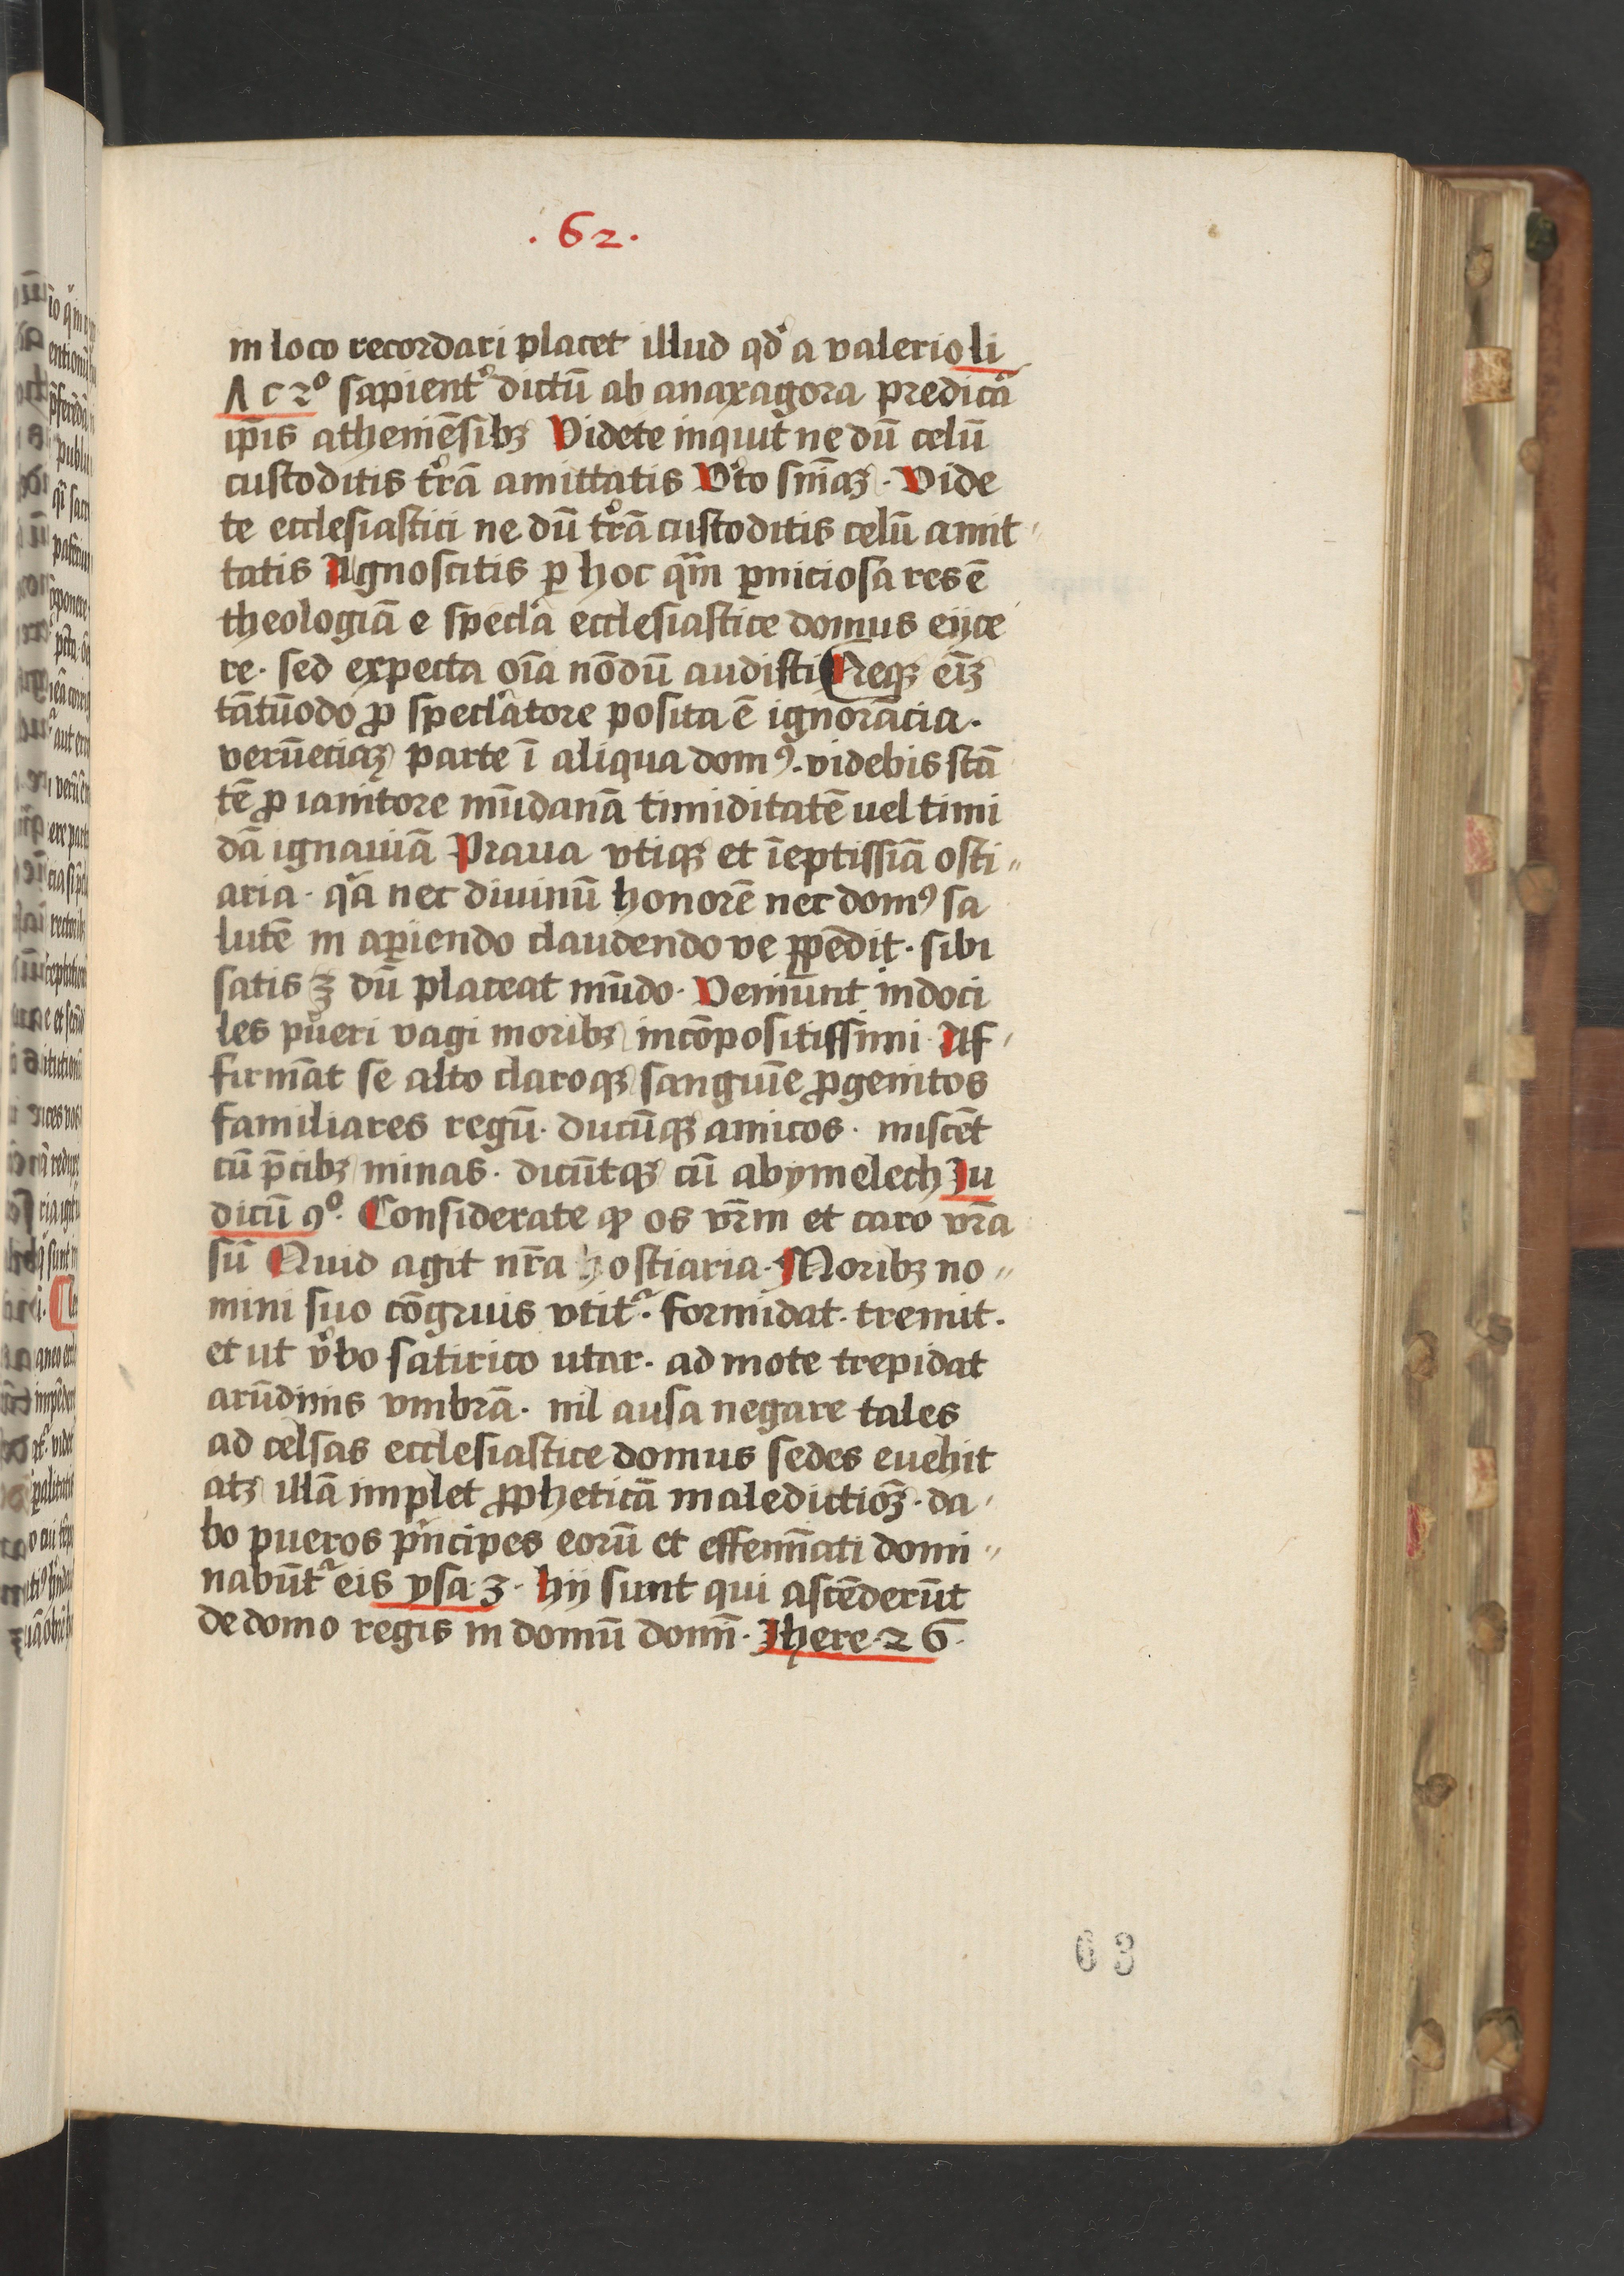 . 62 .
in loco recordari placet illud qd̾ a valerio li
Λ c 2º sapient᷒ dictū ab anaxagora predicā
ip̄is atheniēsibꝫ Videte inquit ne dū celū
custoditis tr̄ā amittatis V̾to sm̄aꝫ · Vide
te ecclesiastici ne dū tr̄ā custoditis celū amit
tatis Agnoscitis ꝑ hoc qᷓm ꝑniciosa res ē
theologiā e specl̾a ecclesiastice domus eijce
re · sed expecta oīa nōdū audisti Neqꝫ eīꝫ
tātūodo ꝓ specl̾atore posita ē ignorācia ·
verūeciāꝫ parte ī aliqua domꝰ · videbis stā
tē ꝓ ianitore mūdanā timiditatē uel timi
dā ignauiā Praua vtiqꝫ et īeptissīā osti
aria · qᷓa nec diuinū honorē nec domꝰ sa
lutē in aꝑiendo claudendo ve ꝓpēdit · sibi
satis ꝫ dū placeat mūdo · Veniūnt indoci
les pueri vagi moribꝫ incōpositissimi · Af
firmāt se alto claroqꝫ sanguīe ꝓgenitos
familiares regū · ducūqꝫ amicos · miscēt
cū p̄cibꝫ minas · dicūtqꝫ cū abymelech Ju
dicū 9º · Considerate ꝙ os vr̄m et caro vr̄a
sū Quid agit nr̄a hostiaria · Moribꝫ no
mini suo cōgruis vtit᷑ · formidat · tremit ·
et ut v̾bo satirico utar · ad mote trepidat
arūdinis vmbrā · nil ausa negare tales
ad celsas ecclesiastice domus sedes euehit
atꝫ illā implet ꝓpheticā maledictiōꝫ · da
bo pueros pⁱncipes eorū et effemīati domi
nabūt᷑ eis ysa · 3 · hij sunt qui ascēderūt
de domo regis in domū domī · Jhere · 26 ·
63